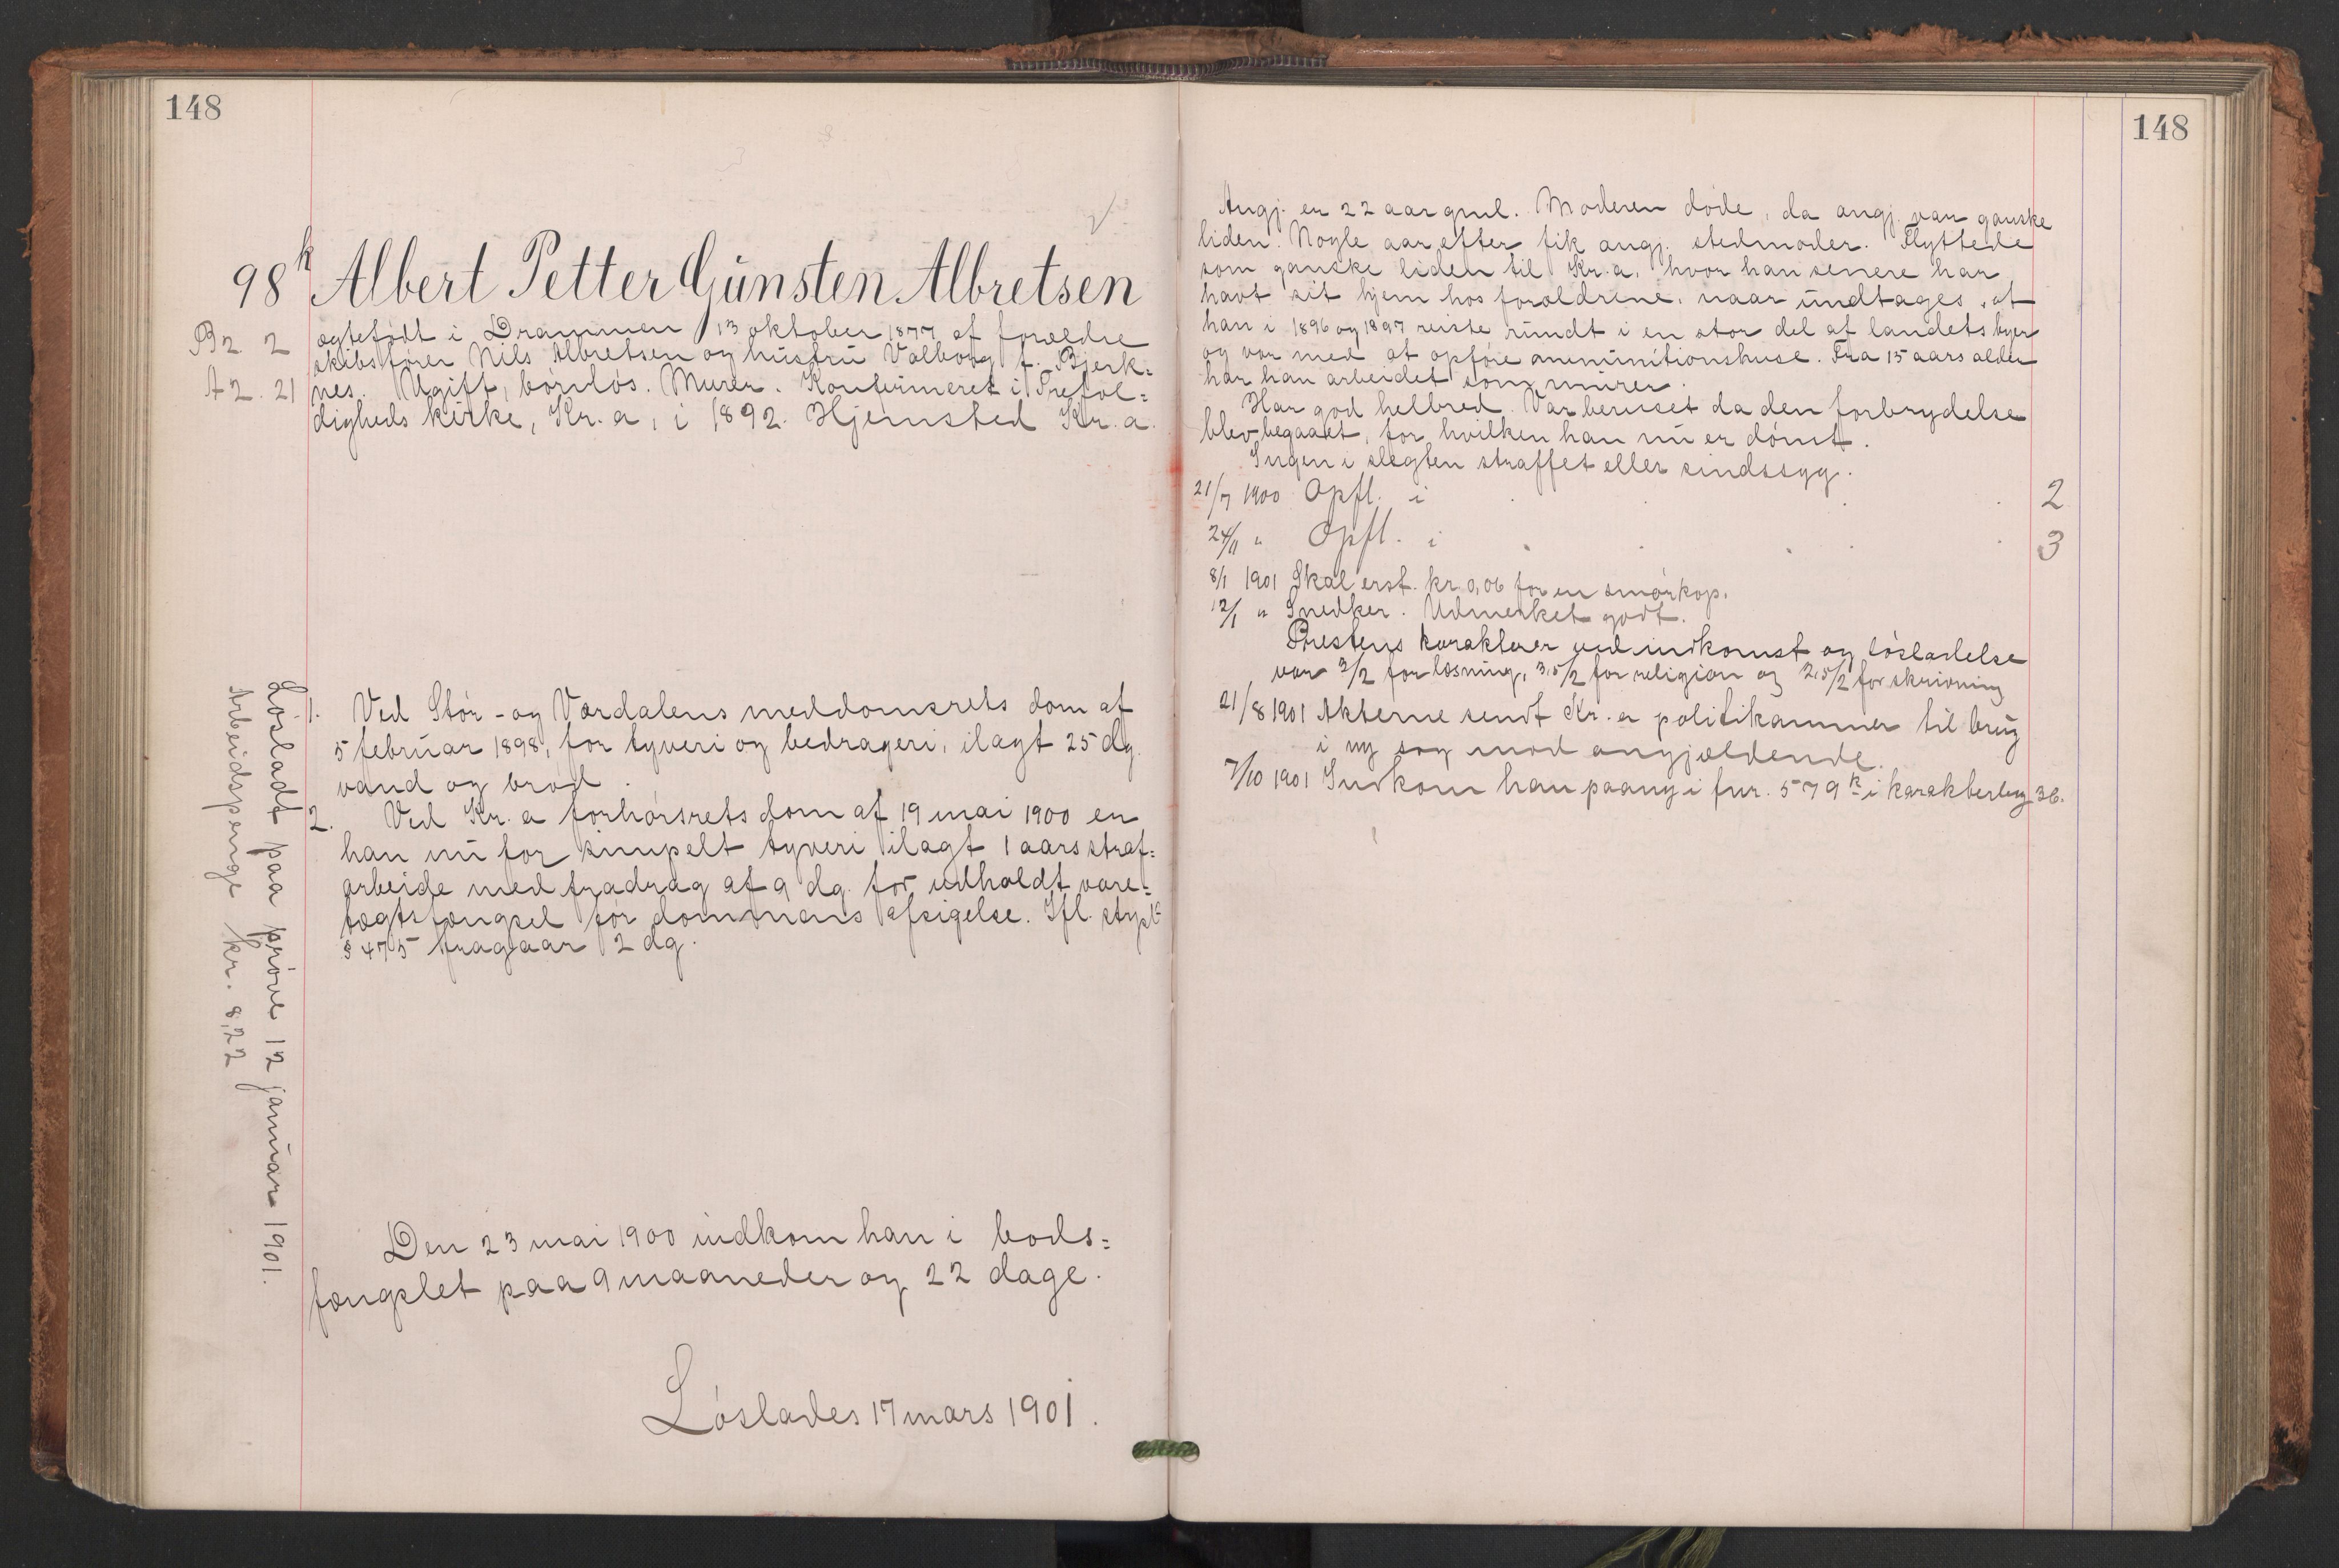 148
98k Albert Petter Günsten Albretsen
B 2. 2
A 2. 21
ægtefødt i Drammen 13 oktober 1877 af forældre
skibsfører Nils Albretsen og hustru Valborg f. Bjerk=
nes. Ugift, børnløs. Murer. Konfirmeret i Trefol=
digheds kirke, Kr.a, i 1892. Hjemsted Kr.a.
1. Ved Stør- og Værdalens meddomsrets dom af
5 februar 1898, for tyveri og bedrageri, ilagt 25 dg.
vand og brød.
2. Ved Kr.a forhørsrets dom af 19 mai 1900 er
han nu for simpelt tyveri ilagt 1 aars straf=
arbeide med fradrag af 9 dg. for udholdt vare=
tægtsfængsel før dommens afsigelse. Ifl. strpl.
§ 475 fragaar 2 dg.
Løsladt paa prøve 12 januar 1901.
Arbeidspenge kr. 8,22
Den 23 mai 1900 indkom han i bods=
fængslet paa 9 maaneder og 22 dage.
Løslades 17 mars 1901.
148
Angj. er 22 aar gml. Moderen døde, da angj. var ganske
liden. Nogle aar efter fik angj. stedmoder. Flyttede
som ganske liden til Kr.a, hvor han senere har
havt sit hjem hos forældrene, naar undtages, at
han i 1896 og 1897 reiste rundt i en stor del af landets byer
og var med at opføie ammunitionshuse. Fra 15 aars alder
har han arbeidet som murer.
Har god helbred. Var beruset da den forbrydelse
blev begaaet, for hvilken han nu er dømt.
Ingen i slegten straffet eller sindssyg.
21/7 1900 Opfl. i 2
24/11 " Opfl. i 3
8/1 1901 Skal erst. kr. 0,06 for en smørkop.
12/1 " Snedker. Udmerket godt.
Prestens karakterer ved indkomst og løsladelse
var 3/2 for læsning, 3,5/2 for religion og 2,5/2 for skrivning
21/8 1901 Akterne sendt Kr.a politikammer til brug
i ny sag mod angjældende.
7/10 1901 Indkom han paany i fnr. 579k i karakterbog 36.